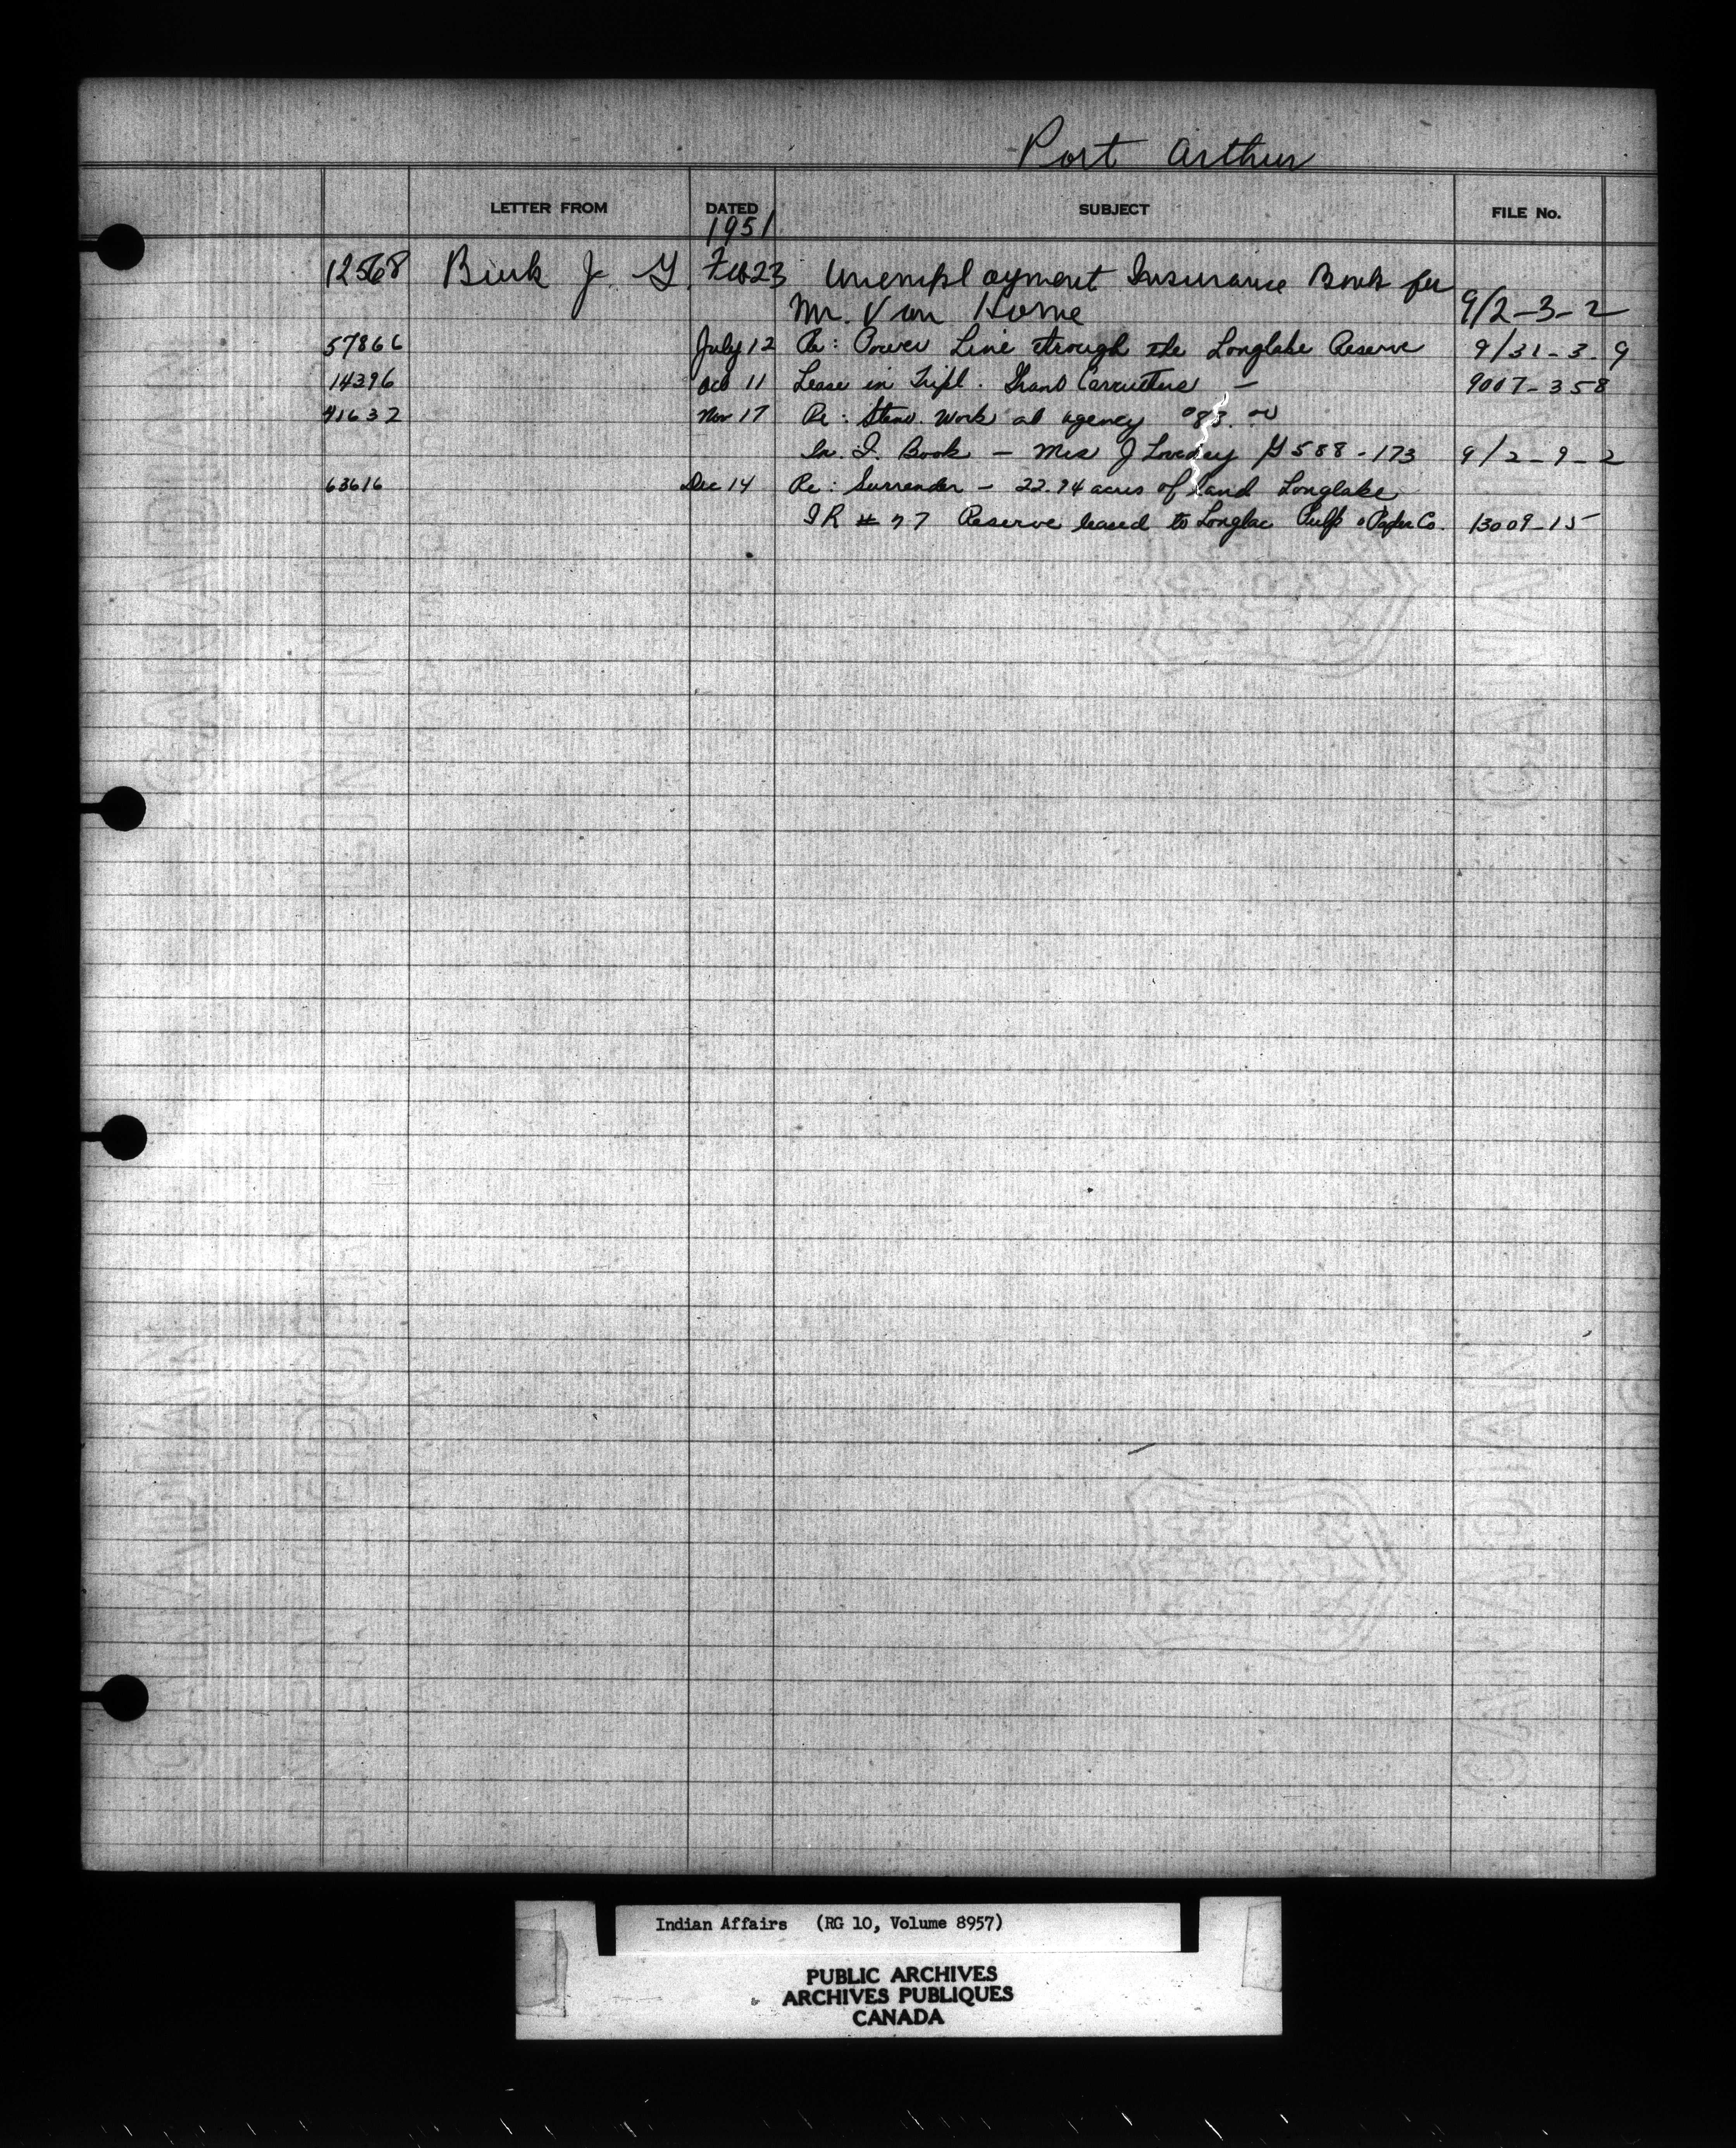 Port Arthur
LETTER FROM DATED SUBJECT FILE No.
1951
12568 J. G. Feb 23 Unemployment Insurance Book for
Mr. Van Horne 9/2-3-2
57866 July 12 Re: Power Line through the Longlake Reserve 9/31-3-9
14396 Oct 11 Lease in Tripl. Carruthers - 9007-358
41632 Nov 17 Re: Steno. Work at agency
Book - Mrs J Loveney G 588-173 9/2-9-2
63616 Dec 14 Re: Surrender - 22.94 acres of land Longlake
IR # 77 Reserve leased to Longlac Pulp & Paper Co. 13009-15
Indian Affairs (RG 10, Volume 8957)
PUBLIC ARCHIVES
ARCHIVES PUBLIQUES
CANADA